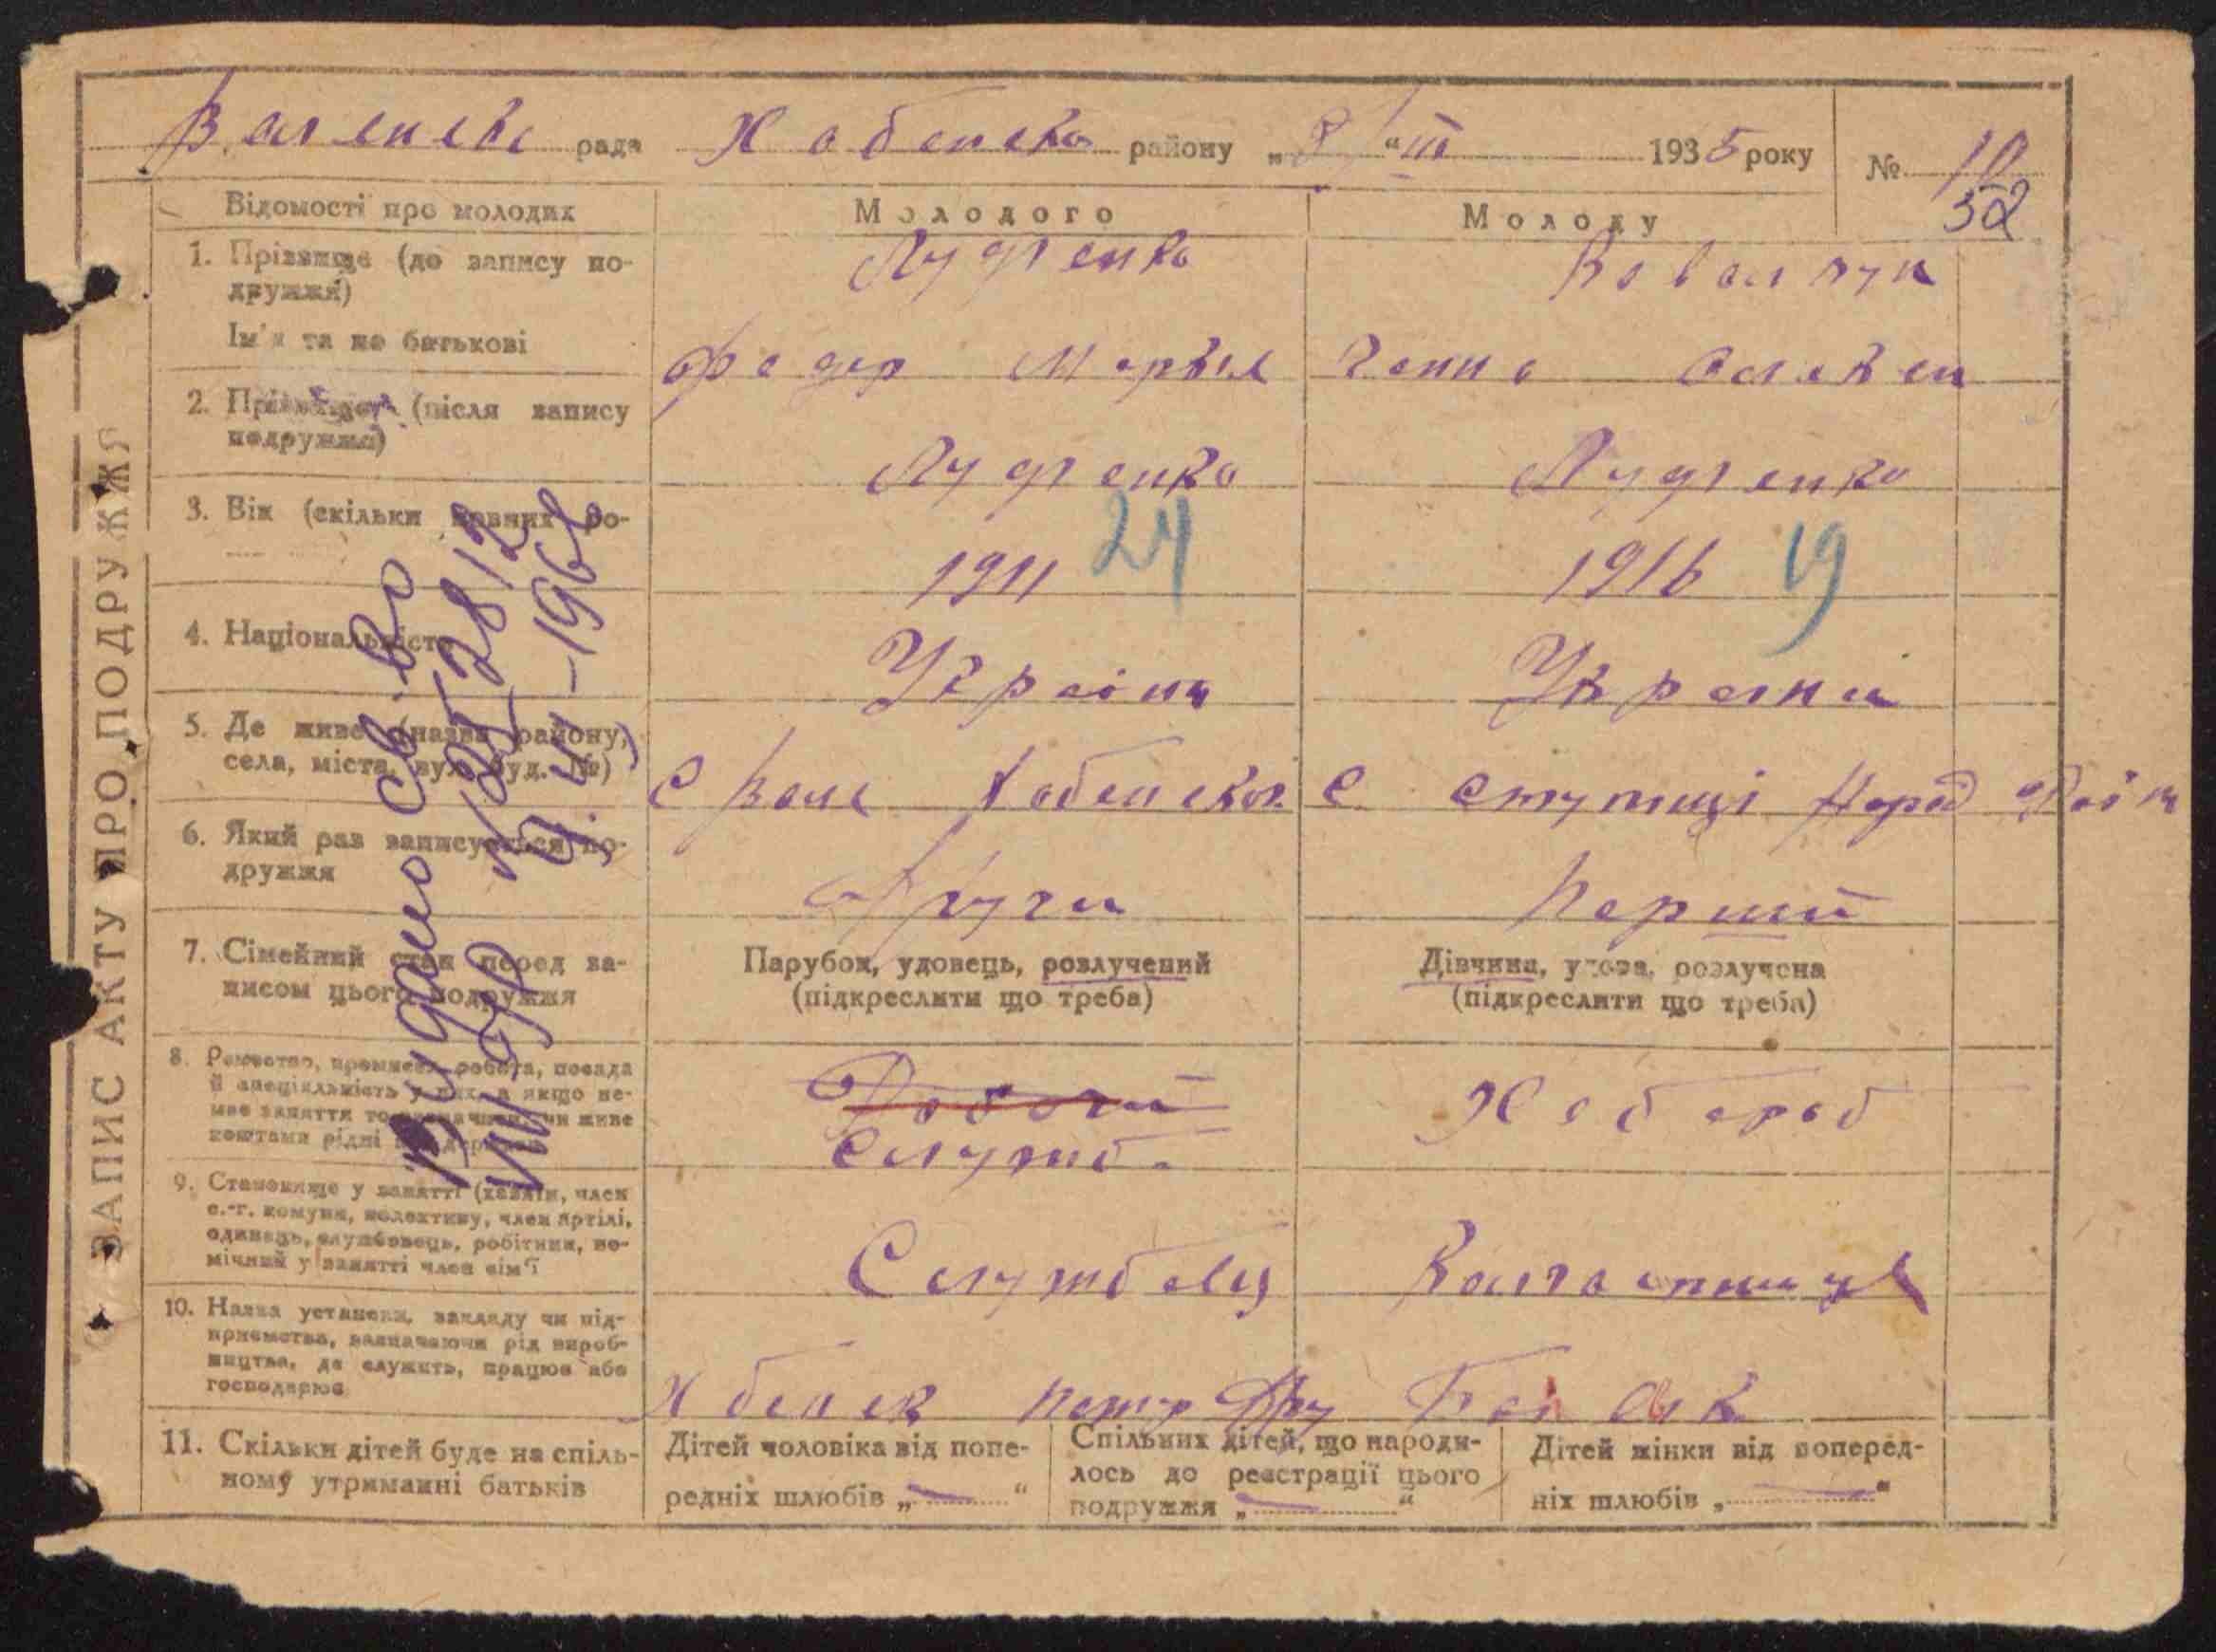 рада Хабенско району „8“ III 1935 року № 10
32
Відомості про молодих Молодого Молоду
1. Прізвище (до запису по-
дружжя) Лудченко Ковальчук
Ім'я та по батькові Федор Марков Ганна
2. Прізвище (після запису
подружжя) Лудченко Лудченко
3. Вік (скільки повних ро-
1911 24 1916 19
4. Національність Україн Україн
5. Де живе (назва району,
села, міста, вул. буд. №) С Вале Хабенсько С Ступищі Народ Рай
6. Який раз записується по-
дружжя Другий Перший
7. Сімейний стан перед за-
писом цього подружжя
Парубок, удовець, розлучений
(підкреслити що треба)
Дівчина, удова, розлучена
(підкреслити що треба)
8. Ремество, промисел, робота, посада
й спеціяльність у них, а якщо не-
має заняття то чи живе
коштами рідні
Робочий
Служб. Хлібороб
9. Становище у занятті (хазяїн, член
с.-г. комуни, колективу, член артілі,
одинець, службовець, робітник, по-
мічний у занятті член сім'ї
Службовец Колгоспниця
10. Назва установи, закладу чи під-
приємства, зазначаючи рід вироб-
ництва, де служить, працює або
господарює
11. Скільки дітей буде на спіль-
ному утриманні батьків
Дітей чоловіка від попе-
редніх шлюбів „ — “
Спільних дітей, що народи-
лось до реєстрації цього
подружжя „ — “
Дітей жінки від поперед-
ніх шлюбів „ — “
ЗАПИС АКТУ ПРО ПОДРУЖЖЯ
Видано св-во